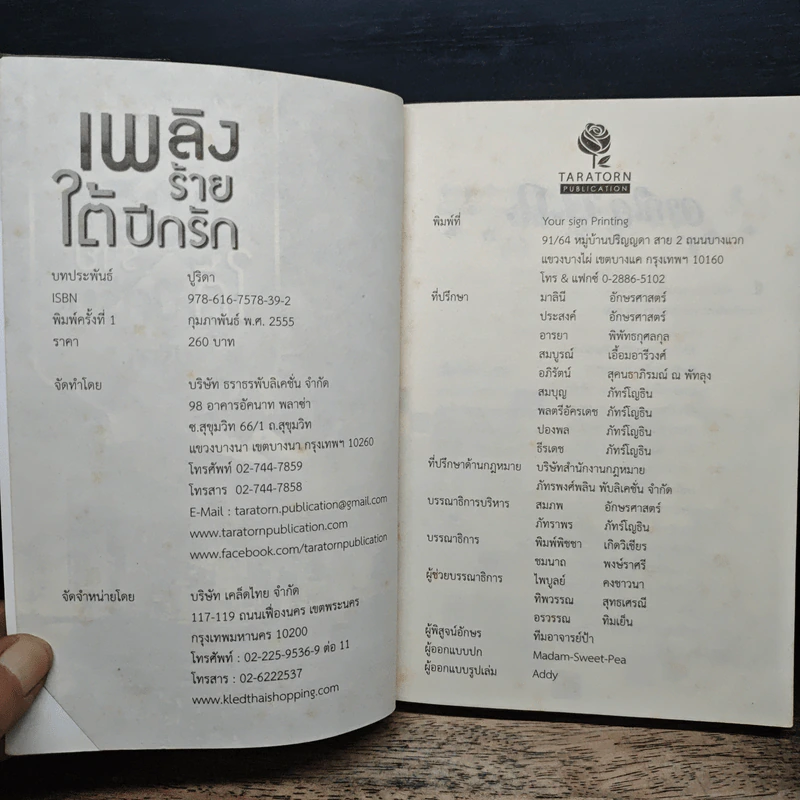 เพลิง
ร้าย
ใต้ปีกรัก
บทประพันธ์ ปูริดา
ISBN 978-616-7578-39-2
พิมพ์ครั้งที่ 1 กุมภาพันธ์ พ.ศ. 2555
ราคา 260 บาท
จัดทำโดย บริษัท ธราธรพับลิเคชั่น จำกัด
98 อาคารอัคนาท พลาซ่า
ซ.สุขุมวิท 66/1 ถ.สุขุมวิท
แขวงบางนา เขตบางนา กรุงเทพฯ 10260
โทรศัพท์ 02-744-7859
โทรสาร 02-744-7858
E-Mail : taratorn.publication@gmail.com
www.taratornpublication.com
www.facebook.com/taratornpublication
จัดจำหน่ายโดย บริษัท เคล็ดไทย จำกัด
117-119 ถนนเฟื่องนคร เขตพระนคร
กรุงเทพมหานคร 10200
โทรศัพท์ : 02-225-9536-9 ต่อ 11
โทรสาร : 02-6222537
www.kledthaishopping.com
TARATORN
PUBLICATION
พิมพ์ที่ Your sign Printing
91/64 หมู่บ้านปริญญดา สาย 2 ถนนบางแวก
แขวงบางไผ่ เขตบางแค กรุงเทพฯ 10160
โทร & แฟกซ์ 0-2886-5102
ที่ปรึกษา มาลินี อักษรศาสตร์
ประสงค์ อักษรศาสตร์
อารยา พิพัทธกุศลกุล
สมบูรณ์ เอี้อมอารีวงศ์
อภิรัตน์ สุคนธาภิรมณ์ ณ พัทลุง
สมบุญ ภัทร์โญธิน
พลตรีอัครเดช ภัทร์โญธิน
ปองพล ภัทร์โญธิน
ธีรเดช ภัทร์โญธิน
ที่ปรึกษาด้านกฎหมาย บริษัทสำนักงานกฎหมาย
ภัทรพงศ์พลิน พับลิเคชั่น จำกัด
บรรณาธิการบริหาร สมภพ อักษรศาสตร์
ภัทราพร ภัทร์โญธิน
บรรณาธิการ พิมพ์พิชชา เกิดวิเชียร
ชมนาถ พงษ์ราศรี
ผู้ช่วยบรรณาธิการ ไพบูลย์ คงชาวนา
ทิพวรรณ สุทธเศรณี
อรวรรณ ทิมเย็น
ผู้พิสูจน์อักษร ทีมอาจารย์ป้า
ผู้ออกแบบปก Madam-Sweet-Pea
ผู้ออกแบบรูปเล่ม Addy